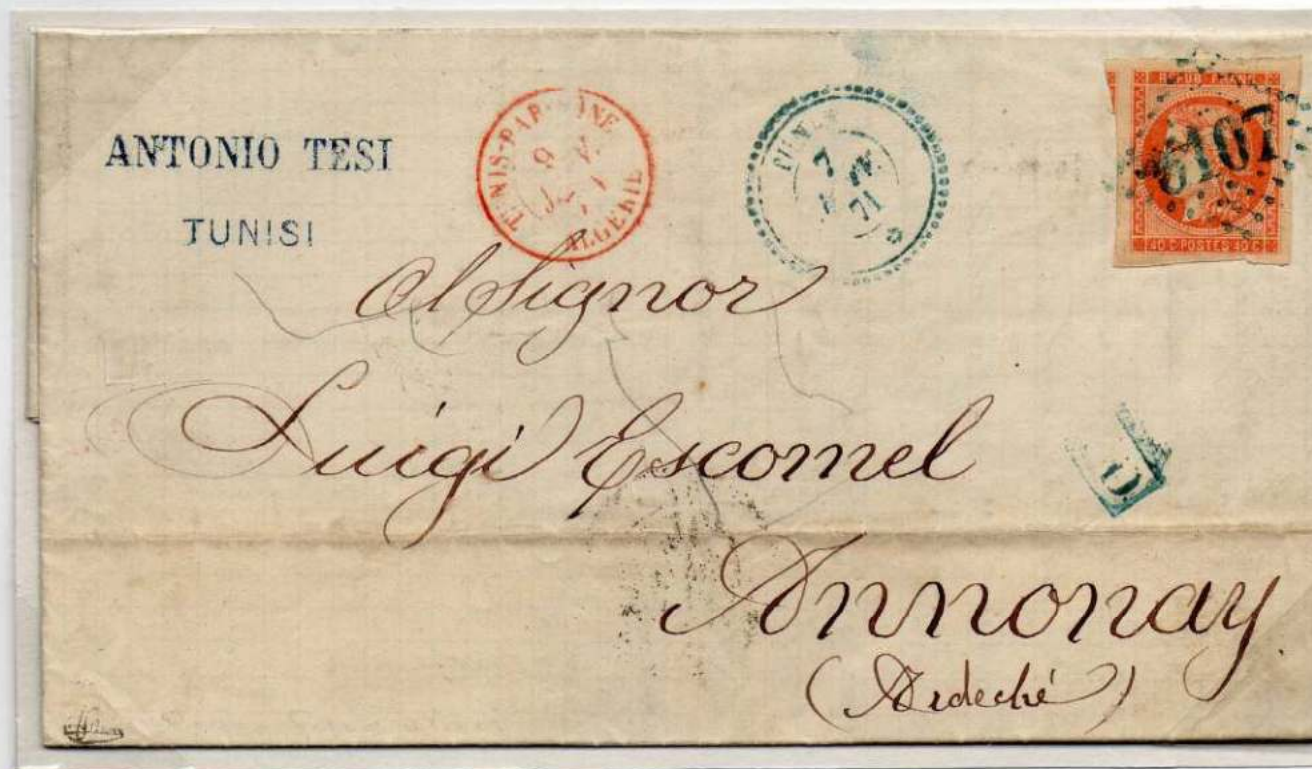 ANTONIO TESI
TUNISI
TUNIS-PAR-
9
ALGERIE
TUNIS
7
71
REPUB FRANC
6107
40 C POSTES 40 C
Al Signor
Luigi Escomel
Annonay
(Ardeché)